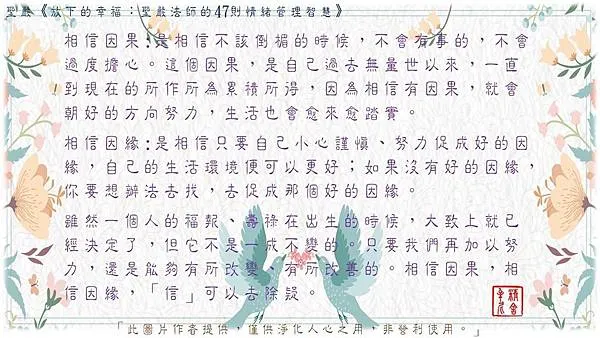 聖嚴《放下的幸福：聖嚴法師的47則情緒管理智慧》
相信因果:是相信不該倒楣的時候，不會有事的，不會
過度擔心。這個因果，是自己過去無量世以來，一直
到現在的所作所為累積所得，因為相信有因果，就會
朝好的方向努力，生活也會愈來愈踏實。
相信因緣:是相信只要自己小心謹慎、努力促成好的因
緣，自己的生活環境便可以更好；如果沒有好的因緣，
你要想辦法去找，去促成那個好的因緣。
雖然一個人的福報、壽祿在出生的時候，大致上就已
經決定了，但它不是一成不變的。只要我們再加以努
力，還是能夠有所改變、有所改善的。相信因果，相
信因緣，「信」可以去除疑。
「此圖片作者提供，僅供淨化人心之用，非營利使用。」